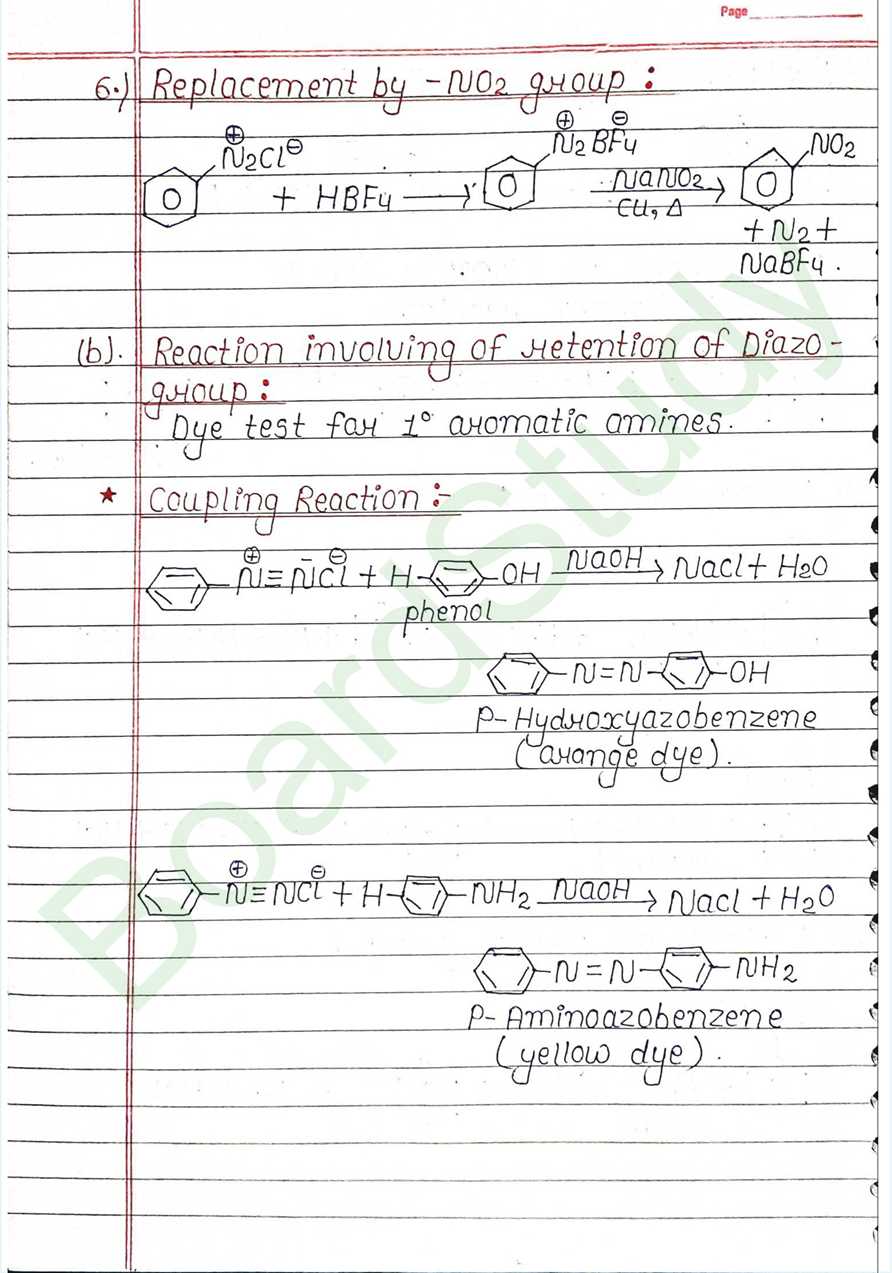 Page
6.) Replacement by -NO2 group :
⊕ ⊖
N2Cl⊖ N2 BF4 NO2
+ HBF4 → NaNO2 →
Cu, Δ
+ N2 +
NaBF4 .
(b). Reaction involving of retention of Diazo -
group :
Dye test far 1° aromatic amines.
★ Coupling Reaction :-
⊕ ⊖
N ≡ N̄Cl + H- -OH NaOH → NaCl + H2O
phenol
-N=N- -OH
P-Hydroxyazobenzene
(arange dye).
⊕ ⊖
N ≡ NCl + H- -NH2 NaOH → NaCl + H2O
-N=N- -NH2
P- Aminoazobenzene
(yellow dye).
BoardStudy